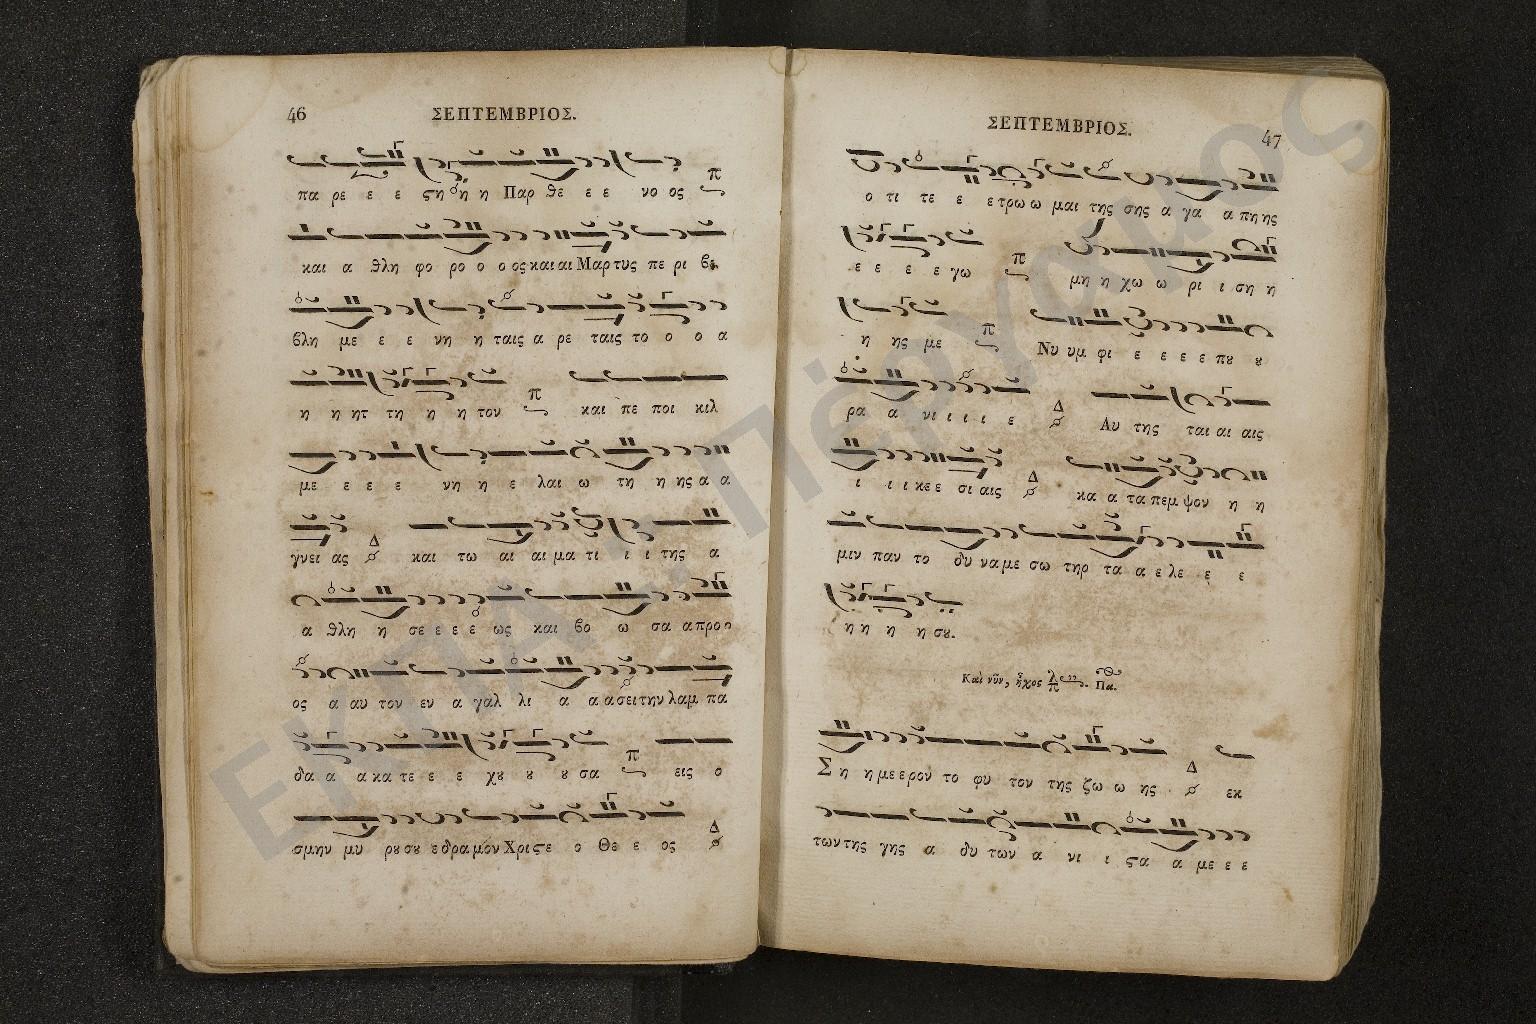 46
ΣΕΠΤΕΜΒΡΙΟΣ.
πα ρε ε ε ϛη η η Παρ θε ε ε νο ος
και α θλη φο ρο ο ο ος και αι Μαρ τυς πε ρι βε
βλη με ε ε νη η ταις α ρε ταις το ο ο α
η η ητ τη η η τον και πε ποι κιλ
με ε ε ε νη η ε λαι ω τη η ης α α
γνει ας και τω αι αι μα τι ι ι της α
α θλη η σε ε ε ε ως και βο ω σα α προ ο
ος α αυ τον εν α γαλ λι α α α σει την λαμ πα
δα α α κα τε ε ε χȣ ȣ ȣ σα εις ο
σμην μυ ρȣ σȣ ε δρα μον Χρι ϛε ο Θε ε ος
ΣΕΠΤΕΜΒΡΙΟΣ.
47
ο τι τε ε ε τρω ω μαι της σης α γα α πη ης
ε ε ε ε γω μη η χω ω ρι ι ση η
η ης με Νυ υμ φι ε ε ε ε πȣ ȣ
ρα α νι ι ι ι ε Αυ της ται αι αις
ι ι ι κε ε σι αις κα α τα πεμ ψον η η
μιν παν το δυ να με σω τηρ τα α ε λε ε ε
η η η η σȣ.
Καὶ νῦν, ἦχος Πα.
Ση η με ε ρον το φυ τον της ζω ω ης εκ
των της γης α δυ των α νι ι ϛα α με ε ε
ΕΚΠΑ, Πέργαμος